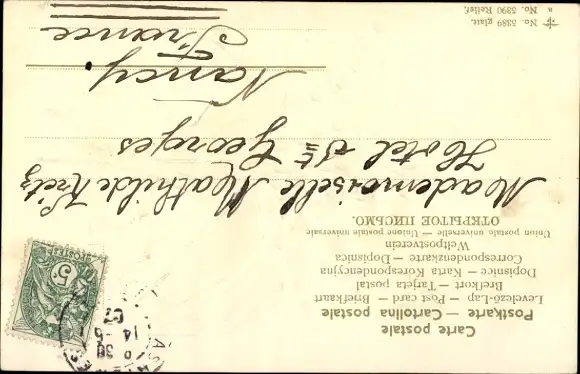 Carte postale
Postkarte — Cartolina postale
Levelező-Lap — Post card — Briefkaart
Brefkort — Tarjeta postal
Dopisnice — Karta Korespondencyjna
Correspondenzkarte — Dopisnica
Weltpostverein
Union postale universelle — Unione postale universale
ОТКРЫТОЕ ПИСЬМО.
Mademoiselle Mathilde
Hotel St Georges
Nancy.
France
No. 5389 glatt.
" No. 5390 Relief.
5
14 - 5
07